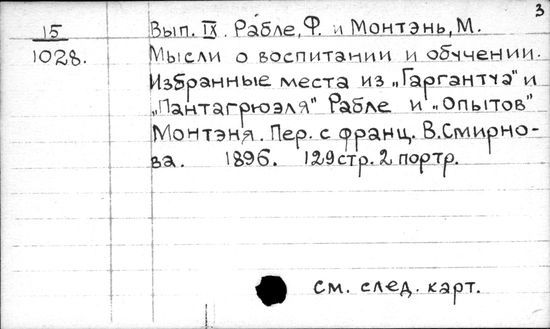 3
15
1028.
Вып. IX. Рабле, Ф. и Монтэнь, М.
Мысли о воспитании и обучении.
Избранные места из „Гаргантуа" и
„Пантагрюэля" Рабле и „Опытов"
Монтэня. Пер. с франц. В. Смирно-
ва. 1896. 129 стр. 2 портр.
см. след. карт.